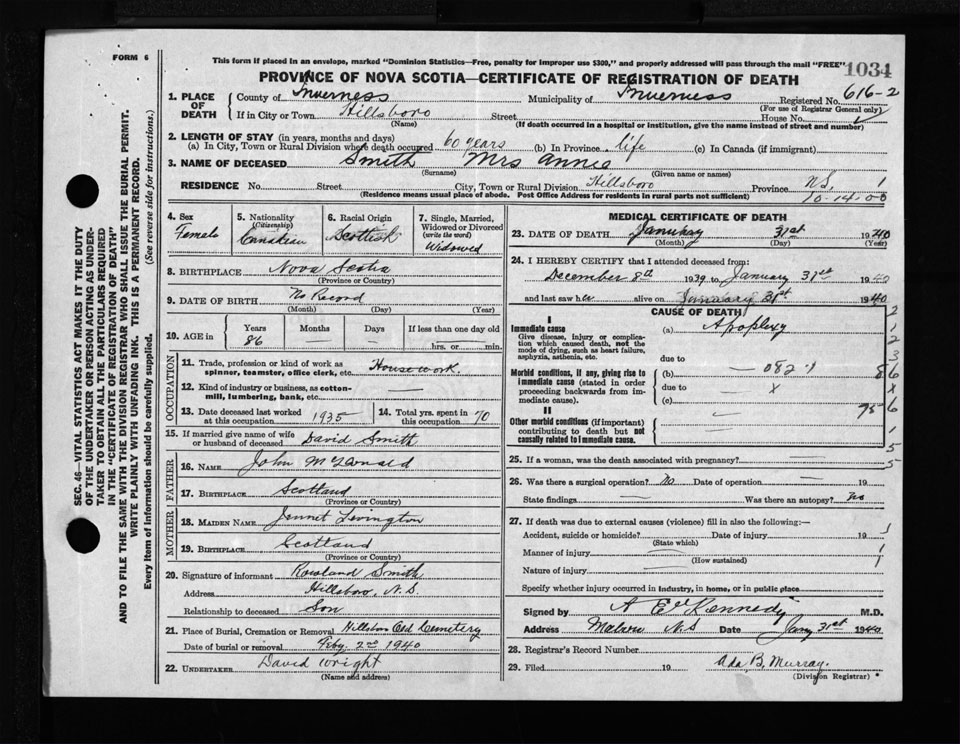 FORM 6
This form if placed in an envelope, marked "Dominion Statistics—Free, penalty for improper use $300," and properly addressed will pass through the mail "FREE"
1034
PROVINCE OF NOVA SCOTIA—CERTIFICATE OF REGISTRATION OF DEATH
1. PLACE OF DEATH
County of Inverness Municipality of Inverness Registered No. 616-2
(For use of Registrar General only)
If in City or Town Hillsboro Street House No.
(Name) (If death occurred in a hospital or institution, give the name instead of street and number)
2. LENGTH OF STAY (in years, months and days)
(a) In City, Town or Rural Division where death occurred 60 years (b) In Province life (c) In Canada (if immigrant)
3. NAME OF DECEASED Smith Mrs Annie
(Surname) (Given name or names)
RESIDENCE No. Street City, Town or Rural Division Hillsboro Province N.S. 1
(Residence means usual place of abode. Post Office Address for residents in rural parts not sufficient) 10-14-00
4. Sex Female
5. Nationality (Citizenship) Canadian
6. Racial Origin Scottish
7. Single, Married, Widowed or Divorced (write the word) Widowed
8. BIRTHPLACE Nova Scotia
(Province or Country)
9. DATE OF BIRTH No Record
(Month) (Day) (Year)
10. AGE in Years Months Days If less than one day old
86 — — hrs. or min.
OCCUPATION
11. Trade, profession or kind of work as spinner, teamster, office clerk, etc. Housework
12. Kind of industry or business, as cotton-mill, lumbering, bank, etc.
13. Date deceased last worked at this occupation 1935
14. Total yrs. spent in this occupation 70
15. If married give name of wife or husband of deceased David Smith
FATHER
16. NAME John McDonald
17. BIRTHPLACE Scotland
(Province or Country)
MOTHER
18. MAIDEN NAME Jennet Livington
19. BIRTHPLACE Scotland
(Province or Country)
20. Signature of informant Rowland Smith
Address Hillsboro, N.S.
Relationship to deceased Son
21. Place of Burial, Cremation or Removal Hillsboro Old Cemetery
Date of burial or removal Feby 2nd 1940
22. UNDERTAKER David Wright
(Name and address)
MEDICAL CERTIFICATE OF DEATH
23. DATE OF DEATH January 31st 1940
(Month) (Day) (Year)
24. I HEREBY CERTIFY that I attended deceased from:
December 8th 1939 to January 31st 1940
and last saw her alive on January 31st 1940
CAUSE OF DEATH
I
Immediate cause
Give disease, injury or complication which caused death, not the mode of dying, such as heart failure, asphyxia, asthenia, etc.
(a) Apoplexy
due to
Morbid conditions, if any, giving rise to immediate cause (stated in order proceeding backwards from immediate cause).
(b) — 082.1 8
due to x
(c) 75
II
Other morbid conditions (if important) contributing to death but not causally related to immediate cause.
2
1
2
3
6
x
6
1
5
5
25. If a woman, was the death associated with pregnancy? —
26. Was there a surgical operation? No Date of operation — 19
State findings — Was there an autopsy? No
27. If death was due to external causes (violence) fill in also the following:—
Accident, suicide or homicide? Date of injury 19 1
(State which)
Manner of injury 1
(How sustained)
Nature of injury
Specify whether injury occurred in industry, in home, or in public place
Signed by A Ed Kennedy M.D.
Address Mabou N.S Date Jany 31st 1940
28. Registrar's Record Number
29. Filed 19 Ada B. Murray.
(Division Registrar)
SEC. 46—VITAL STATISTICS ACT MAKES IT THE DUTY
OF THE UNDERTAKER OR PERSON ACTING AS UNDER-
TAKER TO OBTAIN ALL THE PARTICULARS REQUIRED
IN THE "CERTIFICATE OF REGISTRATION OF DEATH"
AND TO FILE THE SAME WITH THE DIVISION REGISTRAR WHO SHALL ISSUE THE BURIAL PERMIT.
WRITE PLAINLY WITH UNFADING INK. THIS IS A PERMANENT RECORD.
Every item of information should be carefully supplied. (See reverse side for instructions.)